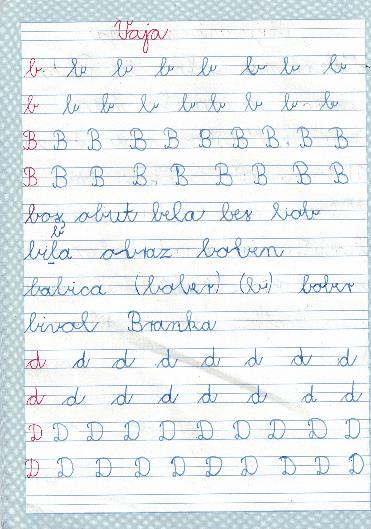 Vaja
b b b b b b b b
b b b b b b b b b
B B B B B B B B B B
B B B B B B B B
bos obut bela bez bob
b
bila obraz boben
babica (bober) (b) bober
bivol Branka
d d d d d d d d
d d d d d d d d
D D D D D D D D D D
D D D D D D D D D D